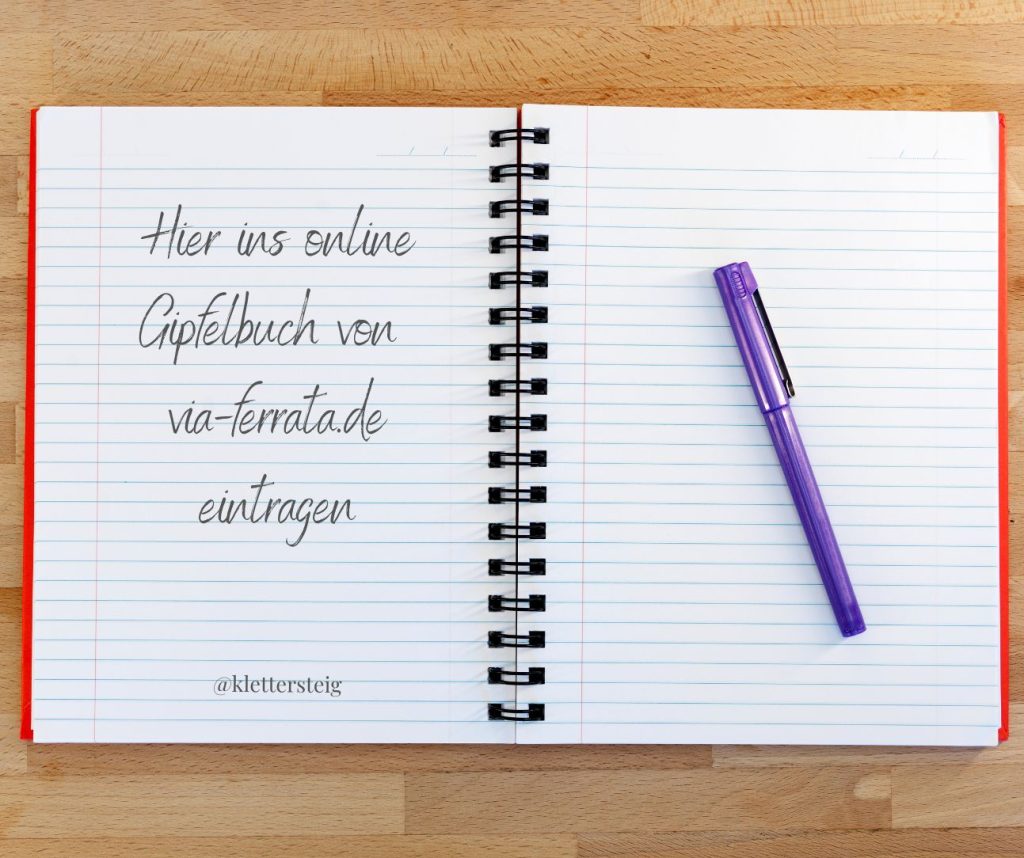 Hier ins online
Gipfelbuch von
via-ferrata.de
eintragen
@klettersteig